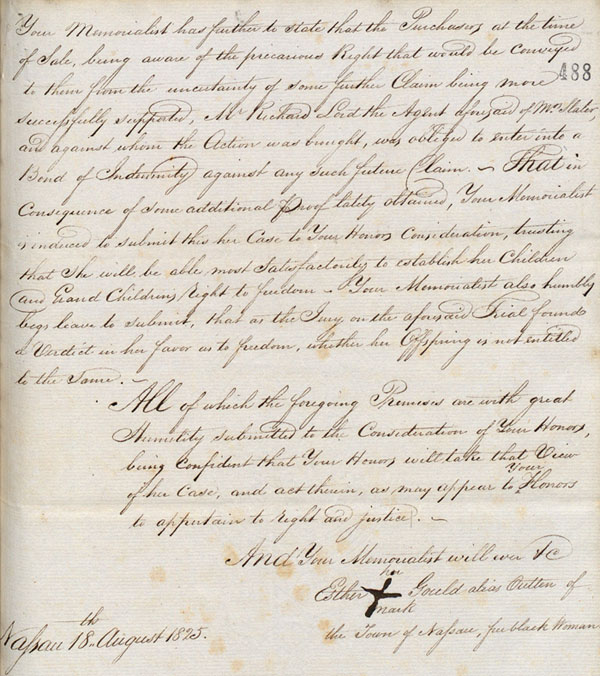 Your Memorialist has further to state that the Purchasers at the time
of Sale, being aware of the precarious Right that would be conveyed
to them from the uncertainty of some further Claim being more
488
successfully supported, Mr Richard Lord the Agent aforesaid of Mrs Slater,
and against whom the Action was brought, was obliged to enter into a
Bond of Indemnity against any such future Claim. — That in
Consequence of some additional proof lately obtained, Your Memorialist
is induced to submit this her Case to Your Honors Consideration, trusting
that She will be able most Satisfactorily to establish her Children
and Grand Childrens Right to freedom — Your Memorialist also humbly
begs leave to Submit, that as the Jury, on the aforesaid Trial found
a Verdict in her favor as to freedom, whether her Offspring is not entitled
to the Same. —
All of which the foregoing Premises are with great
Humility submitted to the Consideration of Your Honors,
being Confident that Your Honors will take that View
of her Case, and act therein, as may appear to Your Honors
to appertain to right and justice. —
And Your Memorialist will ever &c
Esther her X mark Gould alias Dutten of
the Town of Nassau, free black Woman
Nassau 18th August 1825.